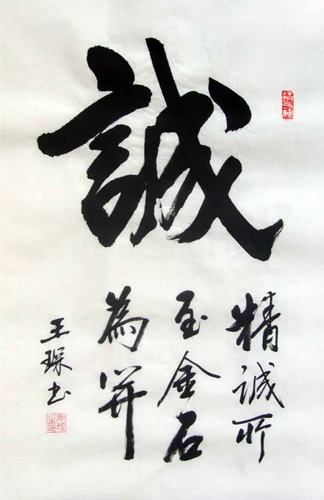 誠
精誠所
至金石
為開
王琛书